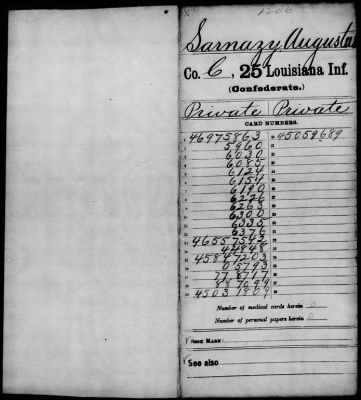 1206
Sarnazy, Augustu
Co. C, 25 Louisiana Inf.
(Confederate.)
Private | Private
CARD NUMBERS.
1 46975863 45059689
2 5960
3 6030
4 6085
5 6124
6 6154
7 6190
8 6226
9 6263
10 6300
11 6335
12 6376
13 46557542
14 44848
15 45847203
16 05793
17 778717
18 887094
19 45031867
Number of medical cards herein 0
Number of personal papers herein 0
BOOK MARK:
See also